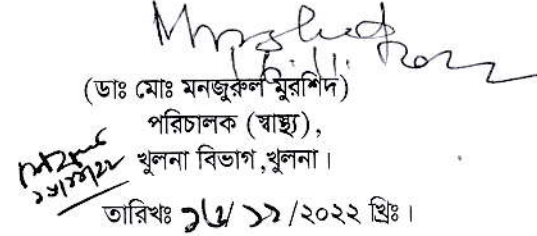 (ডাঃ মোঃ মনজুরুল মুরশিদ)
পরিচালক (স্বাস্থ্য),
খুলনা বিভাগ,খুলনা।
তারিখঃ ১৬/ ১১ /২০২২ খ্রিঃ।